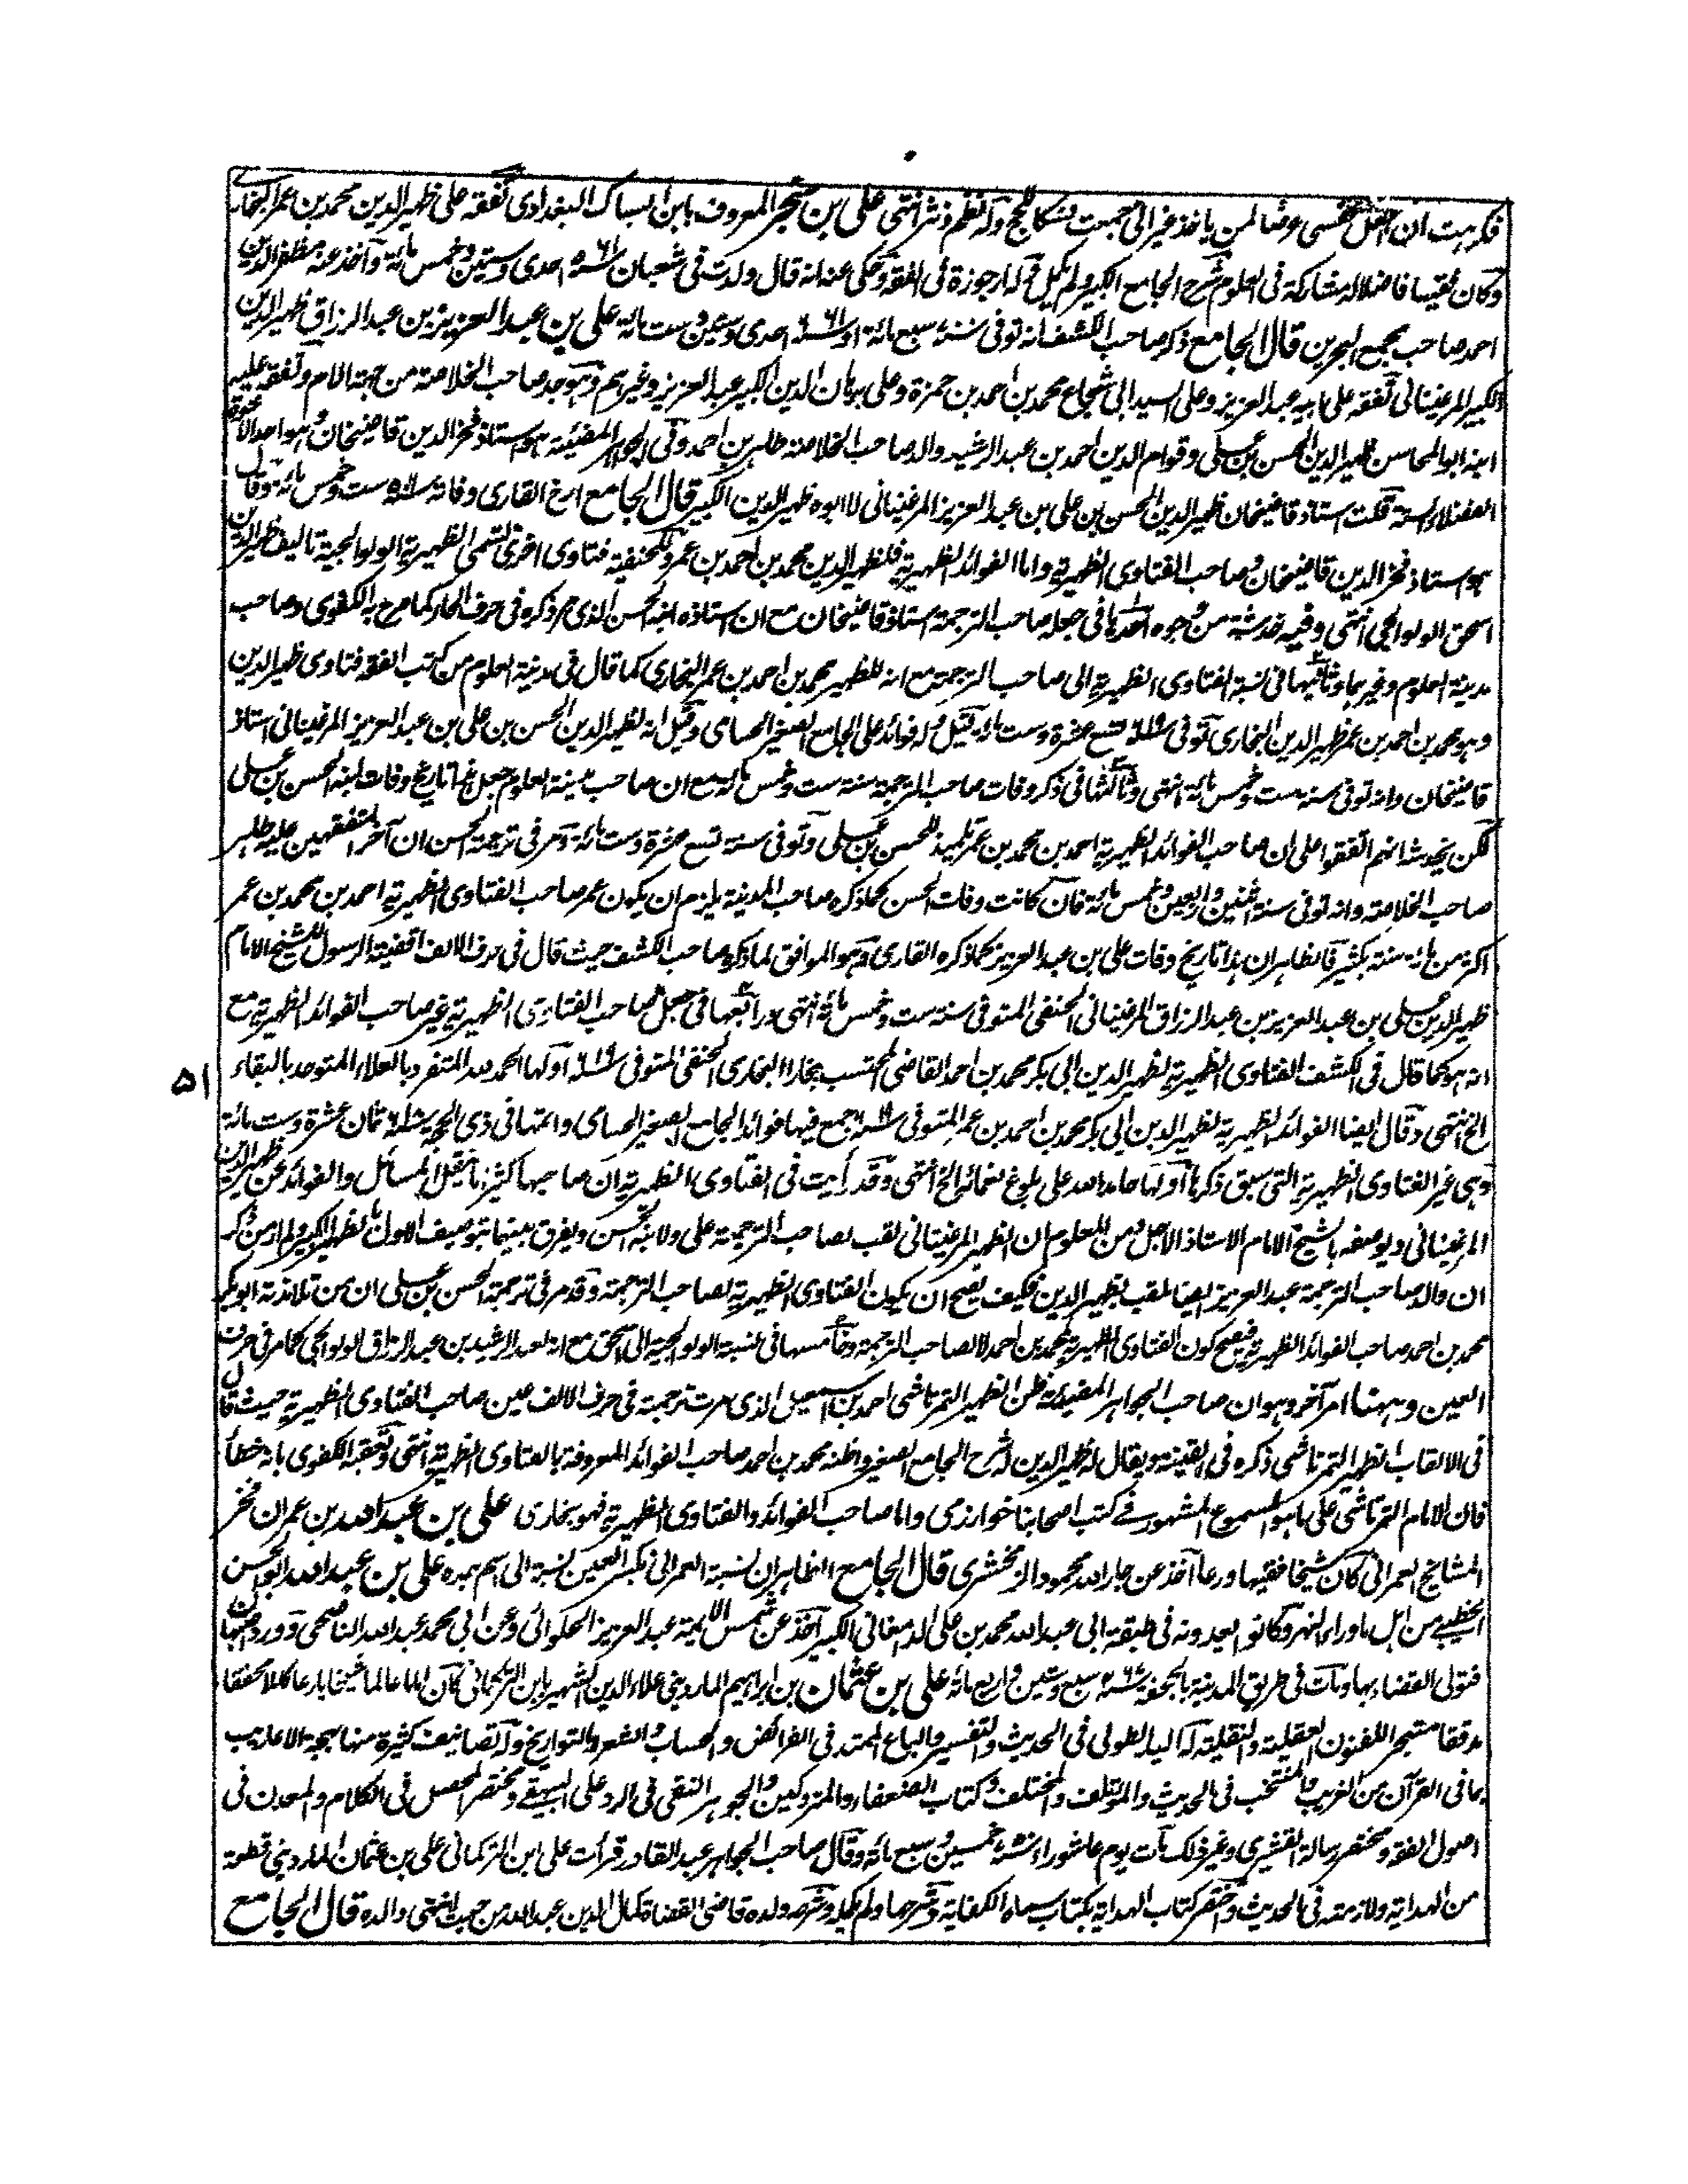 فكرهت ان اجعل نفسى عرضا لمن ياخذ غيرالى جمعت للحج وله نظم ونثر انتهى على بن سنجر المعروف بابن السباك البغدادى تفقه على ظهير الدين محمد بن عمر البخارى
وكان فقيها فاضلا له مشاركة فى العلوم شرح الجامع الكبير ولم يكمل وله ارجوزة فى الفقه وحكى عنه انه قال ولدت فى شعبان سنة ٥٦١ احدى وستين وخمس مائة وآخذ عنه مظفر الدين
احمد صاحب مجمع البحرين قال الجامع ذكر صاحب الكشف انه توفى سنة سبع مائة او سنة ٦٦١ احدى وستين وست مائة على بن عبد العزيز بن عبد الرزاق ظهير الدين
الكبير المرغينانى تفقه على ابيه عبد العزيز وعلى السيد ابى شجاع محمد بن احمد بن حمزة وعلى برهان الدين الكبير عبد العزيز وغيرهم وهو جد صاحب الخلاصة من جهة الام وتفقه عليه
ابنه ابو المحاسن ظهير الدين الحسن بن على وقوام الدين احمد بن عبد الرشيد والد صاحب الخلاصة طاهر بن احمد وفى الجواهر المضيئة هو استاذ فخر الدين قاضيخان وهو احد الاخوة
الفضلاء الستة قلت استاذ قاضيخان ظهير الدين الحسن بن على بن عبد العزيز المرغينانى لا ابوه ظهير الدين الكبير قال الجامع ارخ القارى وفاته سنة ٥٠٦ ست وخمس مائة وقال
هو استاذ فخر الدين قاضيخان وصاحب الفتاوى الظهيرية واما الفوائد الظهيرية فلظهير الدين محمد بن احمد بن عمر وللحنفية فتاوى اخرى تسمى الظهيرية الولوالجية تاليف ظهير الدين
اسحق الولوالجى انتهى وفيه خدشة من وجوه احدها فى جعله صاحب الترجمة استاذ قاضيخان مع ان استاذه ابنه الحسن الذى مر ذكره فى حرف الحاء كما صرح به الكفوى وصاحب
مدينة العلوم وغيرهما وثانيها فى نسبة الفتاوى الظهيرية الى صاحب الترجمة مع انه للظهير محمد بن احمد بن عمر البخارى كما قال فى مدينة العلوم من كتب الفقه فتاوى ظهير الدين
وهو محمد بن احمد بن عمر ظهير الدين البخارى توفى سنة ٦١٩ تسع عشرة وست مائة قيل وله فوائد على الجامع الصغير الحسامى وقيل انه لظهير الدين الحسن بن على بن عبد العزيز المرغينانى استاذ
قاضيخان وانه توفى سنة ست وخمس مائة انتهى وثالثها فى ذكر وفات صاحب الترجمة سنة ست وخمس مائة مع ان صاحب مدينة العلوم جعل هذا تاريخ وفات ابنه الحسن بن على
لكن يخدشه انهم اتفقوا على ان صاحب الفوائد الظهيرية احمد بن محمد بن عمر تلميذ للحسن بن على وتوفى سنة تسع عشرة وست مائة ومر فى ترجمة الحسن ان آخر المتفقهين عليه طاهر
صاحب الخلاصة وانه توفى سنة اثنين واربعين وخمس مائة فان كانت وفات الحسن كما ذكره صاحب المدينة يلزم ان يكون عمر صاحب الفتاوى الظهيرية احمد بن محمد بن عمر
اكثر من مائة سنة بكثير فالظاهر ان هذا تاريخ وفات على بن عبد العزيز كما ذكره القارى وهو الموافق لما ذكره صاحب الكشف حيث قال فى حرف الالف اقضية الرسول للشيخ الامام
ظهير الدين على بن عبد العزيز بن عبد الرزاق المرغينانى الحنفى المتوفى سنة ست وخمس مائة انتهى ورابعها فى جعل صاحب الفتاوى الظهيرية غير صاحب الفوائد الظهيرية مع
انه هو كما قال فى الكشف الفتاوى الظهيرية لظهير الدين ابى بكر محمد بن احمد القاضى المحتسب ببخارا البخارى الحنفى المتوفى سنة ٦١٩ اولها الحمد لله المتفرد بالعلاء المتوحد بالبقاء
٥١
الخ انتهى وقال ايضا الفوائد الظهيرية لظهير الدين ابى بكر محمد بن احمد بن عمر المتوفى سنة ٦١٩ جمع فيها فوائد الجامع الصغير الحسامى واتمها فى ذى الحجة سنة ٦١٨ ثمان عشرة وست مائة
وهى غير الفتاوى الظهيرية التى سبق ذكرها اولها حامدا لله على بلوغ نعمائه الخ انتهى وقد رأيت فى الفتاوى الظهيرية ان صاحبها كثيرا ما ينقل المسائل والفوائد عن ظهير الدين
المرغينانى ويوصفه بالشيخ الامام الاستاذ الاجل ومن المعلوم ان الظهير المرغينانى لقب لصاحب الترجمة على ولابنه الحسن ويفرق بينهما بتوصيف الاول بالظهير الكبير والمراد من ذكر
ان والد صاحب الترجمة عبد العزيز ايضا ملقب بظهير الدين فكيف يصح ان يكون الفتاوى الظهيرية لصاحب الترجمة وقد مر فى ترجمة الحسن بن على ان من تلامذته ابو بكر
محمد بن احمد صاحب الفوائد الظهيرية فيصح كون الفتاوى الظهيرية لمحمد بن احمد لا لصاحب الترجمة وخامسها فى نسبة الولوالجية الى اسحق مع انه لعبد الرشيد بن عبد الرزاق الولوالجى كما مر فى حرف
العين وههنا امر آخر وهو ان صاحب الجواهر المضيئة ظن الظهير التمرتاشى احمد بن اسمعيل الذى مرت ترجمته فى حرف الالف عين صاحب الفتاوى الظهيرية حيث قال
فى الالقاب الظهير التمرتاشى ذكره فى القنية ويقال له ظهير الدين له شرح الجامع الصغير واظنه محمد بن احمد صاحب الفوائد المعروفة بالفتاوى الظهيرية انتهى وتعقبه الكفوى بانه خطأ
فان الامام التمرتاشى على ما هو المسموع المشهور فے كتب اصحابنا خوارزمى واما صاحب الفوائد والفتاوى الظهيرية فهو بخارى على بن عبد الله بن عمران فخر
المشايخ العمرانى كان شيخا فقيها ورعا آخذ عن جار الله محمود الزمخشرى قال الجامع الظاهر ان نسبة العمرانى بكسر العين نسبة الى اسم جده على بن عبد الله ابو الحسن
الخطيبى من اهل ماوراء النهر وكانوا يعدونه فى طبقة ابى عبد الله محمد بن على الدامغانى الكبير آخذ عن شمس الائمة عبد العزيز الحلوائى وعن ابى محمد عبد الله الناصحى وورد اصبهان
فتولى القضاء بها ومات فى طريق المدينة بالجحفة سنة ٤٦٧ سبع وستين واربع مائة على بن عثمان بن ابراهيم الماردينى علاء الدين الشهير بابن التركمانى كان اماما عالما شيخا بارعا كاملا محققا
مدققا متبحرا للفنون العقلية والنقلية له اليد الطولى فى الحديث والتفسير والباع الممتد فى الفرائض والحساب والشعر والتواريخ وله تصانيف كثيرة منها بهجة الاعاريب
بما فى القرآن من الغريب والمنتخب فى الحديث والمؤتلف والمختلف وكتاب الضعفاء والمتروكين والجوهر النقى فى الرد على البيهقے ومختصر المحصل فى الكلام والمعدن فى
اصول الفقه ومختصر رسالة القشيرى وغير ذلك مات يوم عاشوراء سنة ٧٥٠ خمسين وسبع مائة وقال صاحب الجواهر عبد القادر قرأت على ابن التركمانى على بن عثمان الماردينى قطعة
من الهداية ولازمته فى الحديث واختصر كتاب الهداية بكتاب سماه الكفاية وشرحها ولم يكمل وشرحه ولده قاضى القضاة كمال الدين عبد الله من حيث انتهى والده قال الجامع